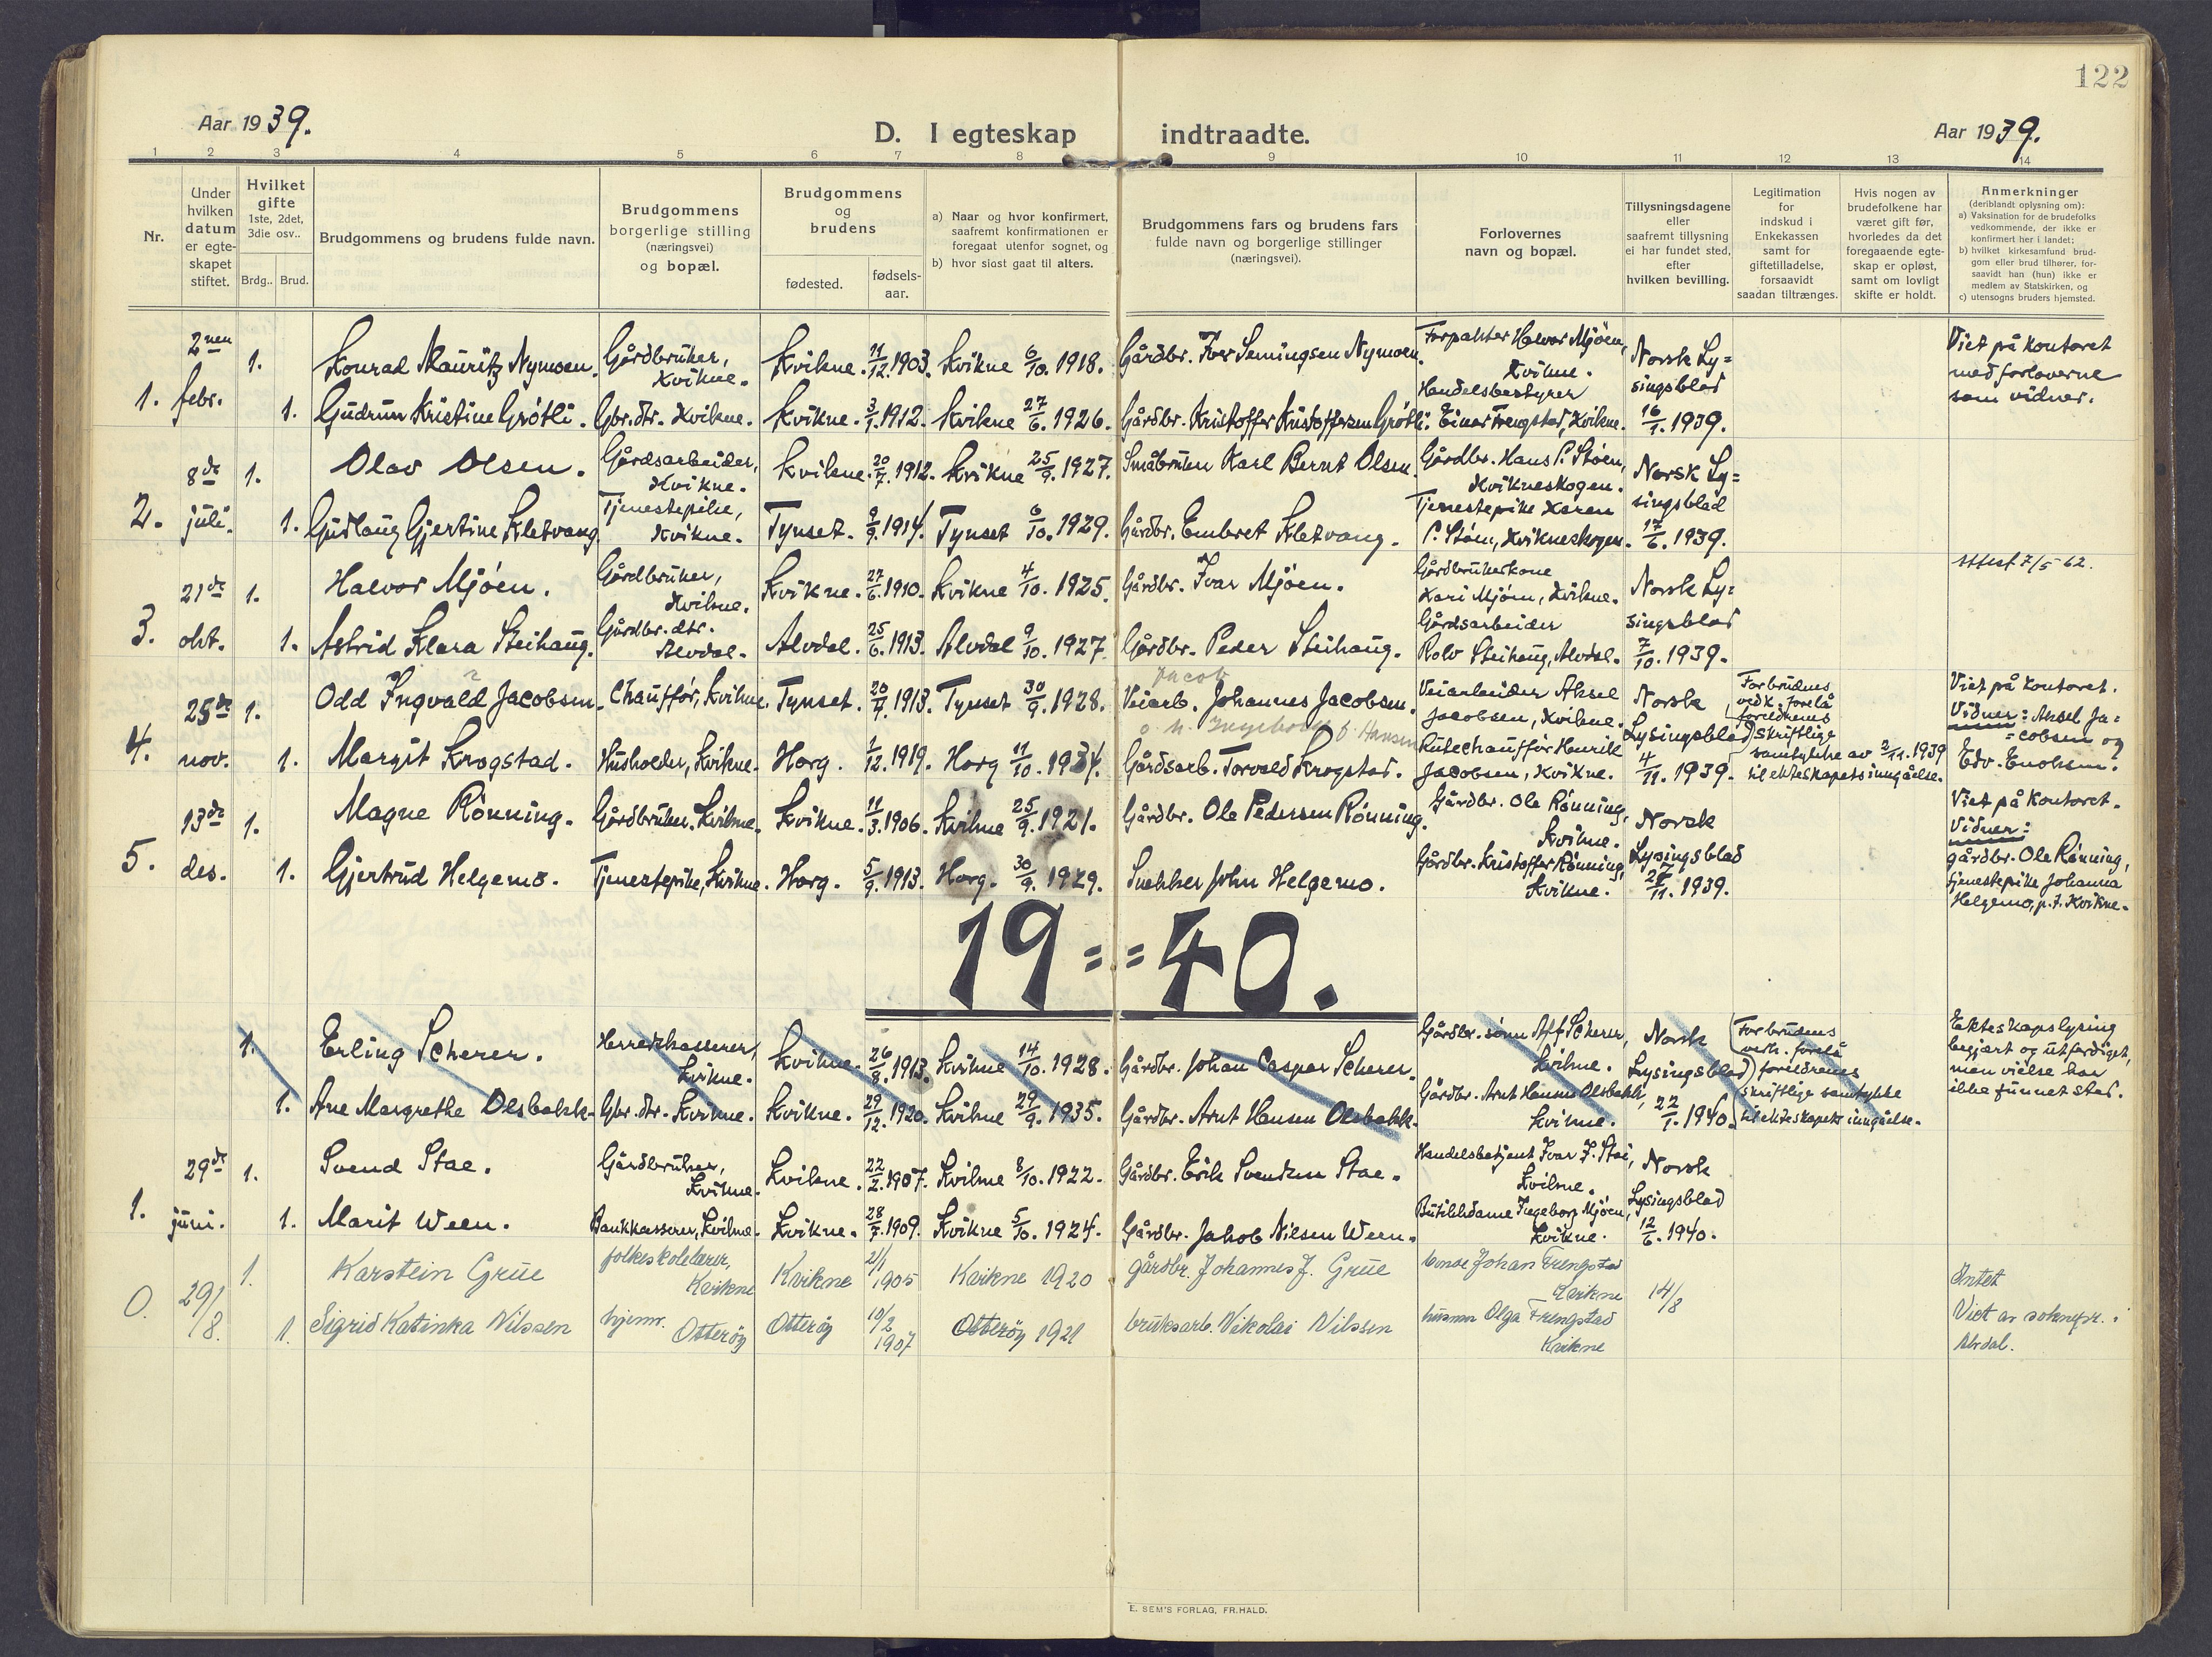 122
Aar 1939.
D. I egteskap indtraadte.
Aar 1939.
1 2 3 4 5 6 7 8 9 10 11 12 13 14
Nr.
Under hvilken datum er egte-skapet stiftet.
Hvilket gifte
1ste, 2det, 3die osv..
Brdg.. Brud.
Brudgommens og brudens fulde navn.
Brudgommens borgerlige stilling (næringsvei) og bopæl.
Brudgommens og brudens
fødested.
fødsels-aar.
a) Naar og hvor konfirmert, saafremt konfirmationen er foregaat utenfor sognet, og
b) hvor sidst gaat til alters.
Brudgommens fars og brudens fars fulde navn og borgerlige stillinger (næringsvei).
Forlovernes navn og bopæl.
Tillysningsdagene eller saafremt tillysning ei har fundet sted, efter hvilken bevilling.
Legitimation for indskud i Enkekassen samt for giftetilladelse, forsaavidt saadan tiltrænges.
Hvis nogen av brudefolkene har været gift før, hvorledes da det foregaaende egte-skap er opløst, samt om lovligt skifte er holdt.
Anmerkninger
(deriblandt oplysning om):
a) Vaksination for de brudefolks vedkommende, der ikke er konfirmert her i landet;
b) hvilket kirkesamfund brud-gom eller brud tilhører, for-saavidt han (hun) ikke er medlem av Statskirken, og
c) utensogns bruders hjemsted.
1. 2nen febr. 1. Konrad Mauritz Nymoen. Gårdbruker, Kvikne. Kvikne. 11/12. 1903. Kvikne 6/10. 1918. Gårdbr. Iver Semingsen Nymoen. Forpakter Halvor Mjøen, Kvikne. Norsk Ly=singsblad 16/1. 1939. Viet på kontoret med forloverne som vidner.
1. Gudrun Kristine Grøtli. Gbr.dtr. Kvikne. Kvikne. 3/1. 1912. Kvikne 27/6. 1926. Gårdbr. Kristoffer Kristoffersen Grøtli. Handelsbestyrer Einar Frengstad, Kvikne.
2. 8de juli. 1. Olav Olsen. Gårdsarbeider, Kvikne. Kvikne. 20/7. 1912. Kvikne 25/9. 1927. Småbruker Karl Bernt Olsen. Gårdbr. Hans P. Støen, Kvikneskogen. Norsk Ly=singsblad 17/6. 1939.
1. Gudlaug Gjertine Kletvang. Tjenestepike, Kvikne. Tynset. 9/9. 1914. Tynset 6/10. 1929. Gårdbr. Embret Kletvang. Tjenestepike Karen P. Støen, Kvikneskogen.
3. 21de okt. 1. Halvor Mjøen. Gårdbruker, Kvikne. Kvikne. 27/6. 1910. Kvikne 4/10. 1925. Gårdbr. Ivar Mjøen. Gårdbrukerkone Kari Mjøen, Kvikne. Norsk Ly=singsblad 7/10. 1939. Attest 7/5-62.
1. Astrid Klara Steihaug. Gårdbr. dtr. Alvdal. Alvdal. 25/6. 1913. Alvdal 9/10. 1927. Gårdbr. Peder Steihaug. Gårdsarbeider Rolv Steihaug, Alvdal.
4. 25de nov. 1. Odd Ingvald Jacobsen. Chauffør, Kvikne. Tynset. 20/7. 1913. Tynset 30/9. 1928. Jacob Veiarb. Johannes Jacobsen. o. h. Ingeborg f. Hansen Veiarbeider Aksel Jacobsen, Kvikne. Norsk Lysingsblad 4/11. 1939. For brudens vedk. forelå foreldrenes skriftlige samtykke av 2/11. 1939 til ekteskapets inngåelse. Viet på kontoret. Vidner: Aksel Ja=cobsen og Edv. Enoksen.
1. Margit Krogstad. Husholder, Kvikne. Horg. 1/12. 1919. Horg 11/10. 1934. Gårdsarb. Torvald Krogstad. Rutechauffør Henrik Jacobsen, Kvikne.
5. 13de des. 1. Magne Rønning. Gårdbruker, Kvikne. Kvikne. 11/3. 1906. Kvikne 25/9. 1921. Gårdbr. Ole Pedersen Rønning. Gårdbr. Ole Rønning, Kvikne. Norsk Lysingsblad 11. 1939. Viet på kontoret. Vidner: gårdbr. Ole Rønning, tjenestepike Johanna Helgemo, p.t. Kvikne.
1. Gjertrud Helgemo. Tjenestepike, Kvikne. Horg. 5/9. 1913. Horg. 30/9. 1929. Snekker John Helgemo. Gårdbr. Kristoffer Rønning, Kvikne.
19==40.
1. Erling Scherer. Herredskasserer, Kvikne. Kvikne. 26/8. 1913. Kvikne 14/10. 1928. Gårdbr. Johan Caspar Scherer. Gårdbr. sønn Alf Scherer, Kvikne. Norsk Lysingsblad 22/1. 1940. For brudens vedk. forelå foreldrenes skriftlige samtykke til ekteskapets inngåelse. Ekteskapslysing begjært og utferdiget, men vielse har ikke funnet sted.
1. Ane Margrethe Olsbakk. Gbr. dtr. Kvikne. Kvikne. 29/12. 1920. Kvikne 29/9. 1935. Gårdbr. Arnt Hansen Olsbakk. Gårdbr. Arnt Hansen Olsbakk, Kvikne.
1. 29de juni. 1. Svend Stae. Gårdbruker, Kvikne. Kvikne. 22/2. 1907. Kvikne 8/10. 1922. Gårdbr. Erik Svendsen Stae. Handelsbetjent Ivar J. Stai, Kvikne. Norsk Lysingsblad 12/6. 1940.
1. Marit Ween. Bankkasserer, Kvikne. Kvikne. 28/7. 1909. Kvikne 5/10. 1924. Gårdbr. Jakob Nilsen Ween. Butikkdame Ingeborg Mjøen, Kvikne.
0. 29/8. 1. Karstein Grue folkeskolelærer, Kvikne Kvikne 21/1 1905 Kvikne 1920 gårdbr. Johannes J. Grue Johan Frengstad Kvikne 14/8 Intet Viet av sokнepr. i Alvdal.
1. Sigrid Katinka Nilssen hjemv. Otterøy Otterøy 10/2 1907 Otterøy 1921 bruksarb. Nikolai Nilssen husmor Olga Frengstad Kvikne
E. SEM'S FORLAG, FR.HALD.